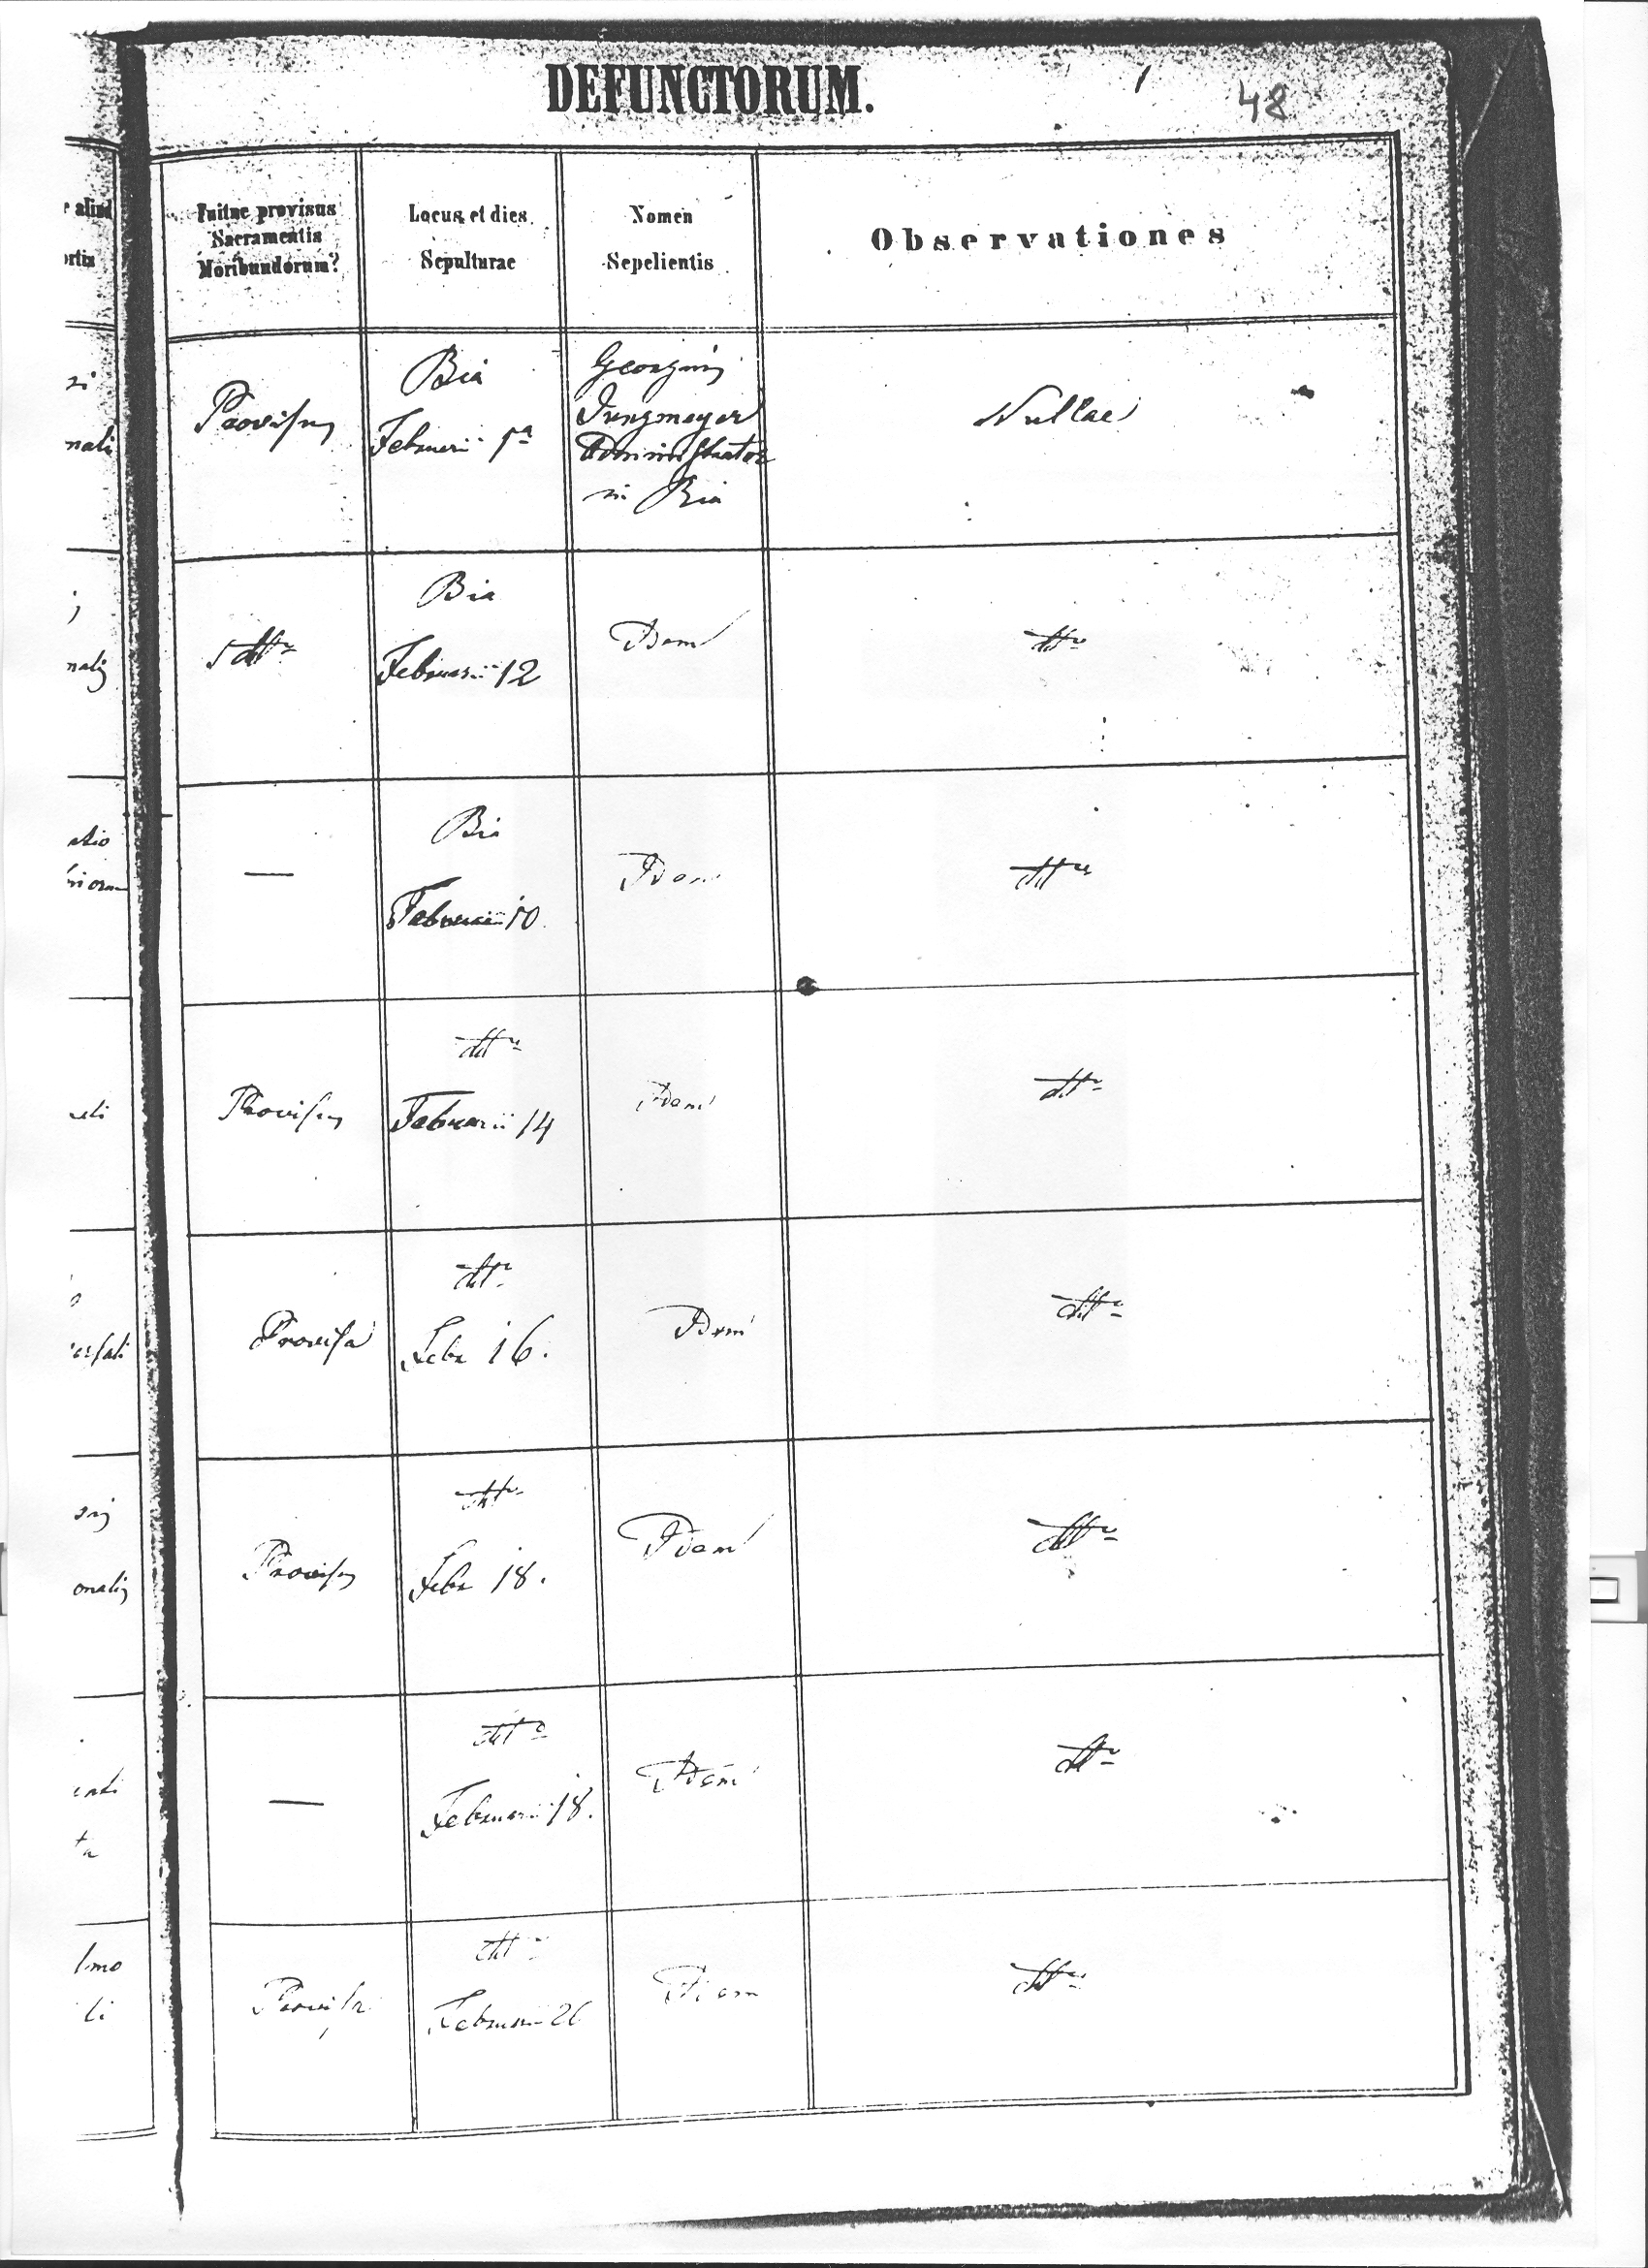 DEFUNCTORUM.
48
Fuitne provisus
Sacramentis
Moribundorum?
Locus et dies
Sepulturae
Nomen
Sepelientis
Observationes
Provisus
Bia
Februarii 1a
Georgius
Jungmayer
Administrator
in Bia
Nullae
ditto
Bia
Februarii 12
Idem
ditto
—
Bia
Februarii 10.
Idem
ditto
Provisus
ditto
Februarii 14
Idem
ditto
Provisa
ditto
Febr 16.
Idem
ditto
Provisus
ditto
Febr 18.
Idem
ditto
—
ditto
Februarii 18.
Idem
ditto
Provisa
ditto
Februarii
Idem
ditto